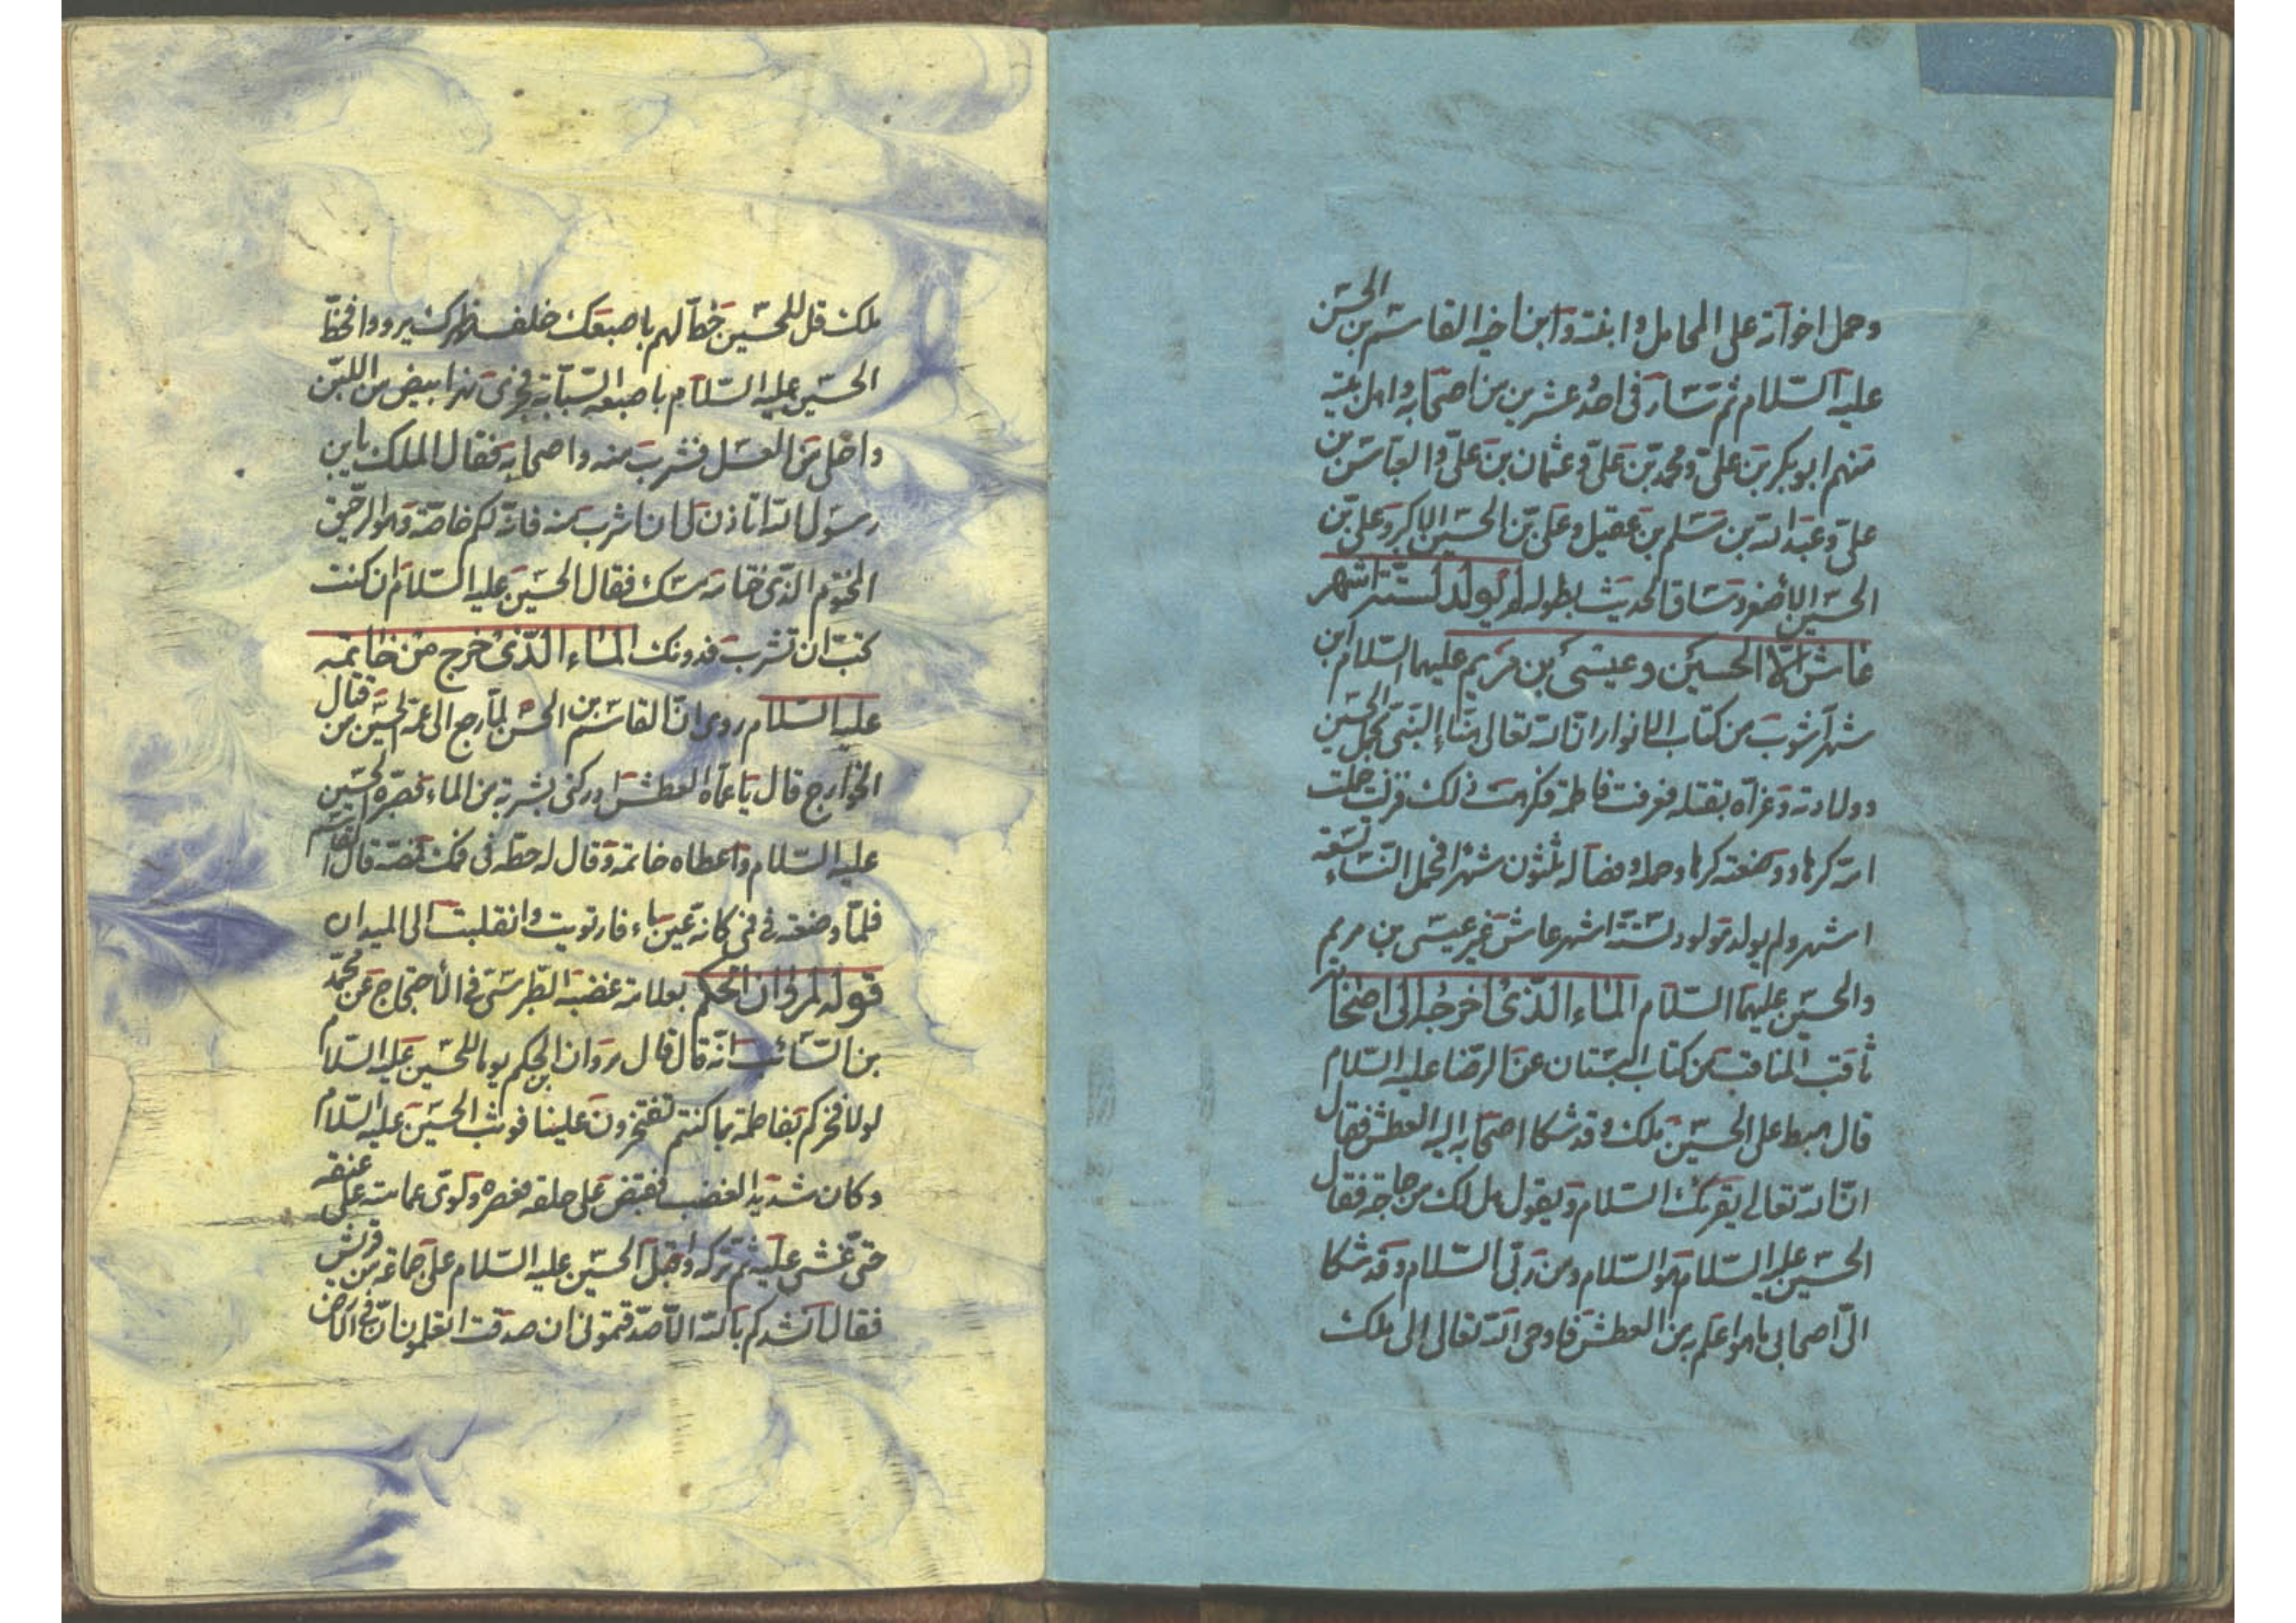 وحمل اخواته على المحامل وابنته وابن اخيه القاسم بن الحسن
عليه السلام ثم سار فى احد عشرين من اصحابه واهل بيته
منهم ابو بكر بن على ومحمد بن على وعثمان بن على والعباس بن
على وعبد الله بن مسلم بن عقيل وعلى بن الحسين الاكبر وعلى بن
الحسين الاصغر وساق الحديث بطوله لم يولد لستة اشهر
عاش الا الحسين وعيسى بن مريم عليهما السلام ابن
شهر آشوب من كتاب الانوار ان الله تعالى هنّاء النبى بحمل الحسين
وولادته وعزاه بقتله فعرفت فاطمة فكرهت ذلك فنزلت حملت
امه كرها ووضعته كرها وحمله وفصاله ثلثون شهرا فحمل النساء تسعة
اشهر ولم يولد مولود لستة اشهر عاش غير عيسى بن مريم
والحسين عليهما السلام الماء الذى اخرجه الى اصحابه
ثاقب المناقب من كتاب البستان عن الرضا عليه السلام
قال هبط على الحسين ملك وقد شكا اصحابه اليه العطش فقال
ان الله تعالى يقرئك السلام ويقول هل لك من حاجة فقال
الحسين عليه السلام هو السلام ومن ربى السلام وقد شكا
الى اصحابى ما هو اعلم به من العطش فاوحى الله تعالى الى ملك
ملك قل للحسين خط لهم باصبعك خلف ظهرك يرووا فخط
الحسين عليه السلام باصبعه السبابة فجرى نهر ابيض من اللبن
واحلى من العسل فشرب منه واصحابه فقال الملك يابن
رسول الله اتاذن لى ان اشرب منه فانه لكم خاصة وهو الرحيق
المختوم الذى ختامه مسك فقال الحسين عليه السلام ان كنت
تحب ان تشرب فدونك الماء الذى خرج من خاتمه
عليه السلام روى ان القاسم بن الحسن لما رجع الى عمه الحسين من قتال
الخوارج قال يا عماه العطش ادركنى بشربة من الماء فصبره الحسين
عليه السلام واعطاه خاتمه وقال له حطه فى فمك فمصه قال القاسم
فلما وضعته فى فمى كانه عين ماء فارتويت وانقلبت الى الميدان
قوله لمروان الحكم بعلامة غضبه الطبرسى فى الاحتجاج عن محمد
بن السائب انه قال قال مروان بن الحكم يوما للحسين عليه السلام
لولا فخركم بفاطمة بما كنتم تفتخرون علينا فوثب الحسين عليه السلام
وكان شديد الغضب فقبض على حلقه فعصره ولوى عمامته على عنقه
حتى غشى عليه ثم تركه واقبل الحسين عليه السلام على جماعة من قريش
فقال انشدكم بالله الا صدقتمونى ان صدقت اتعلمون ان فى الارض